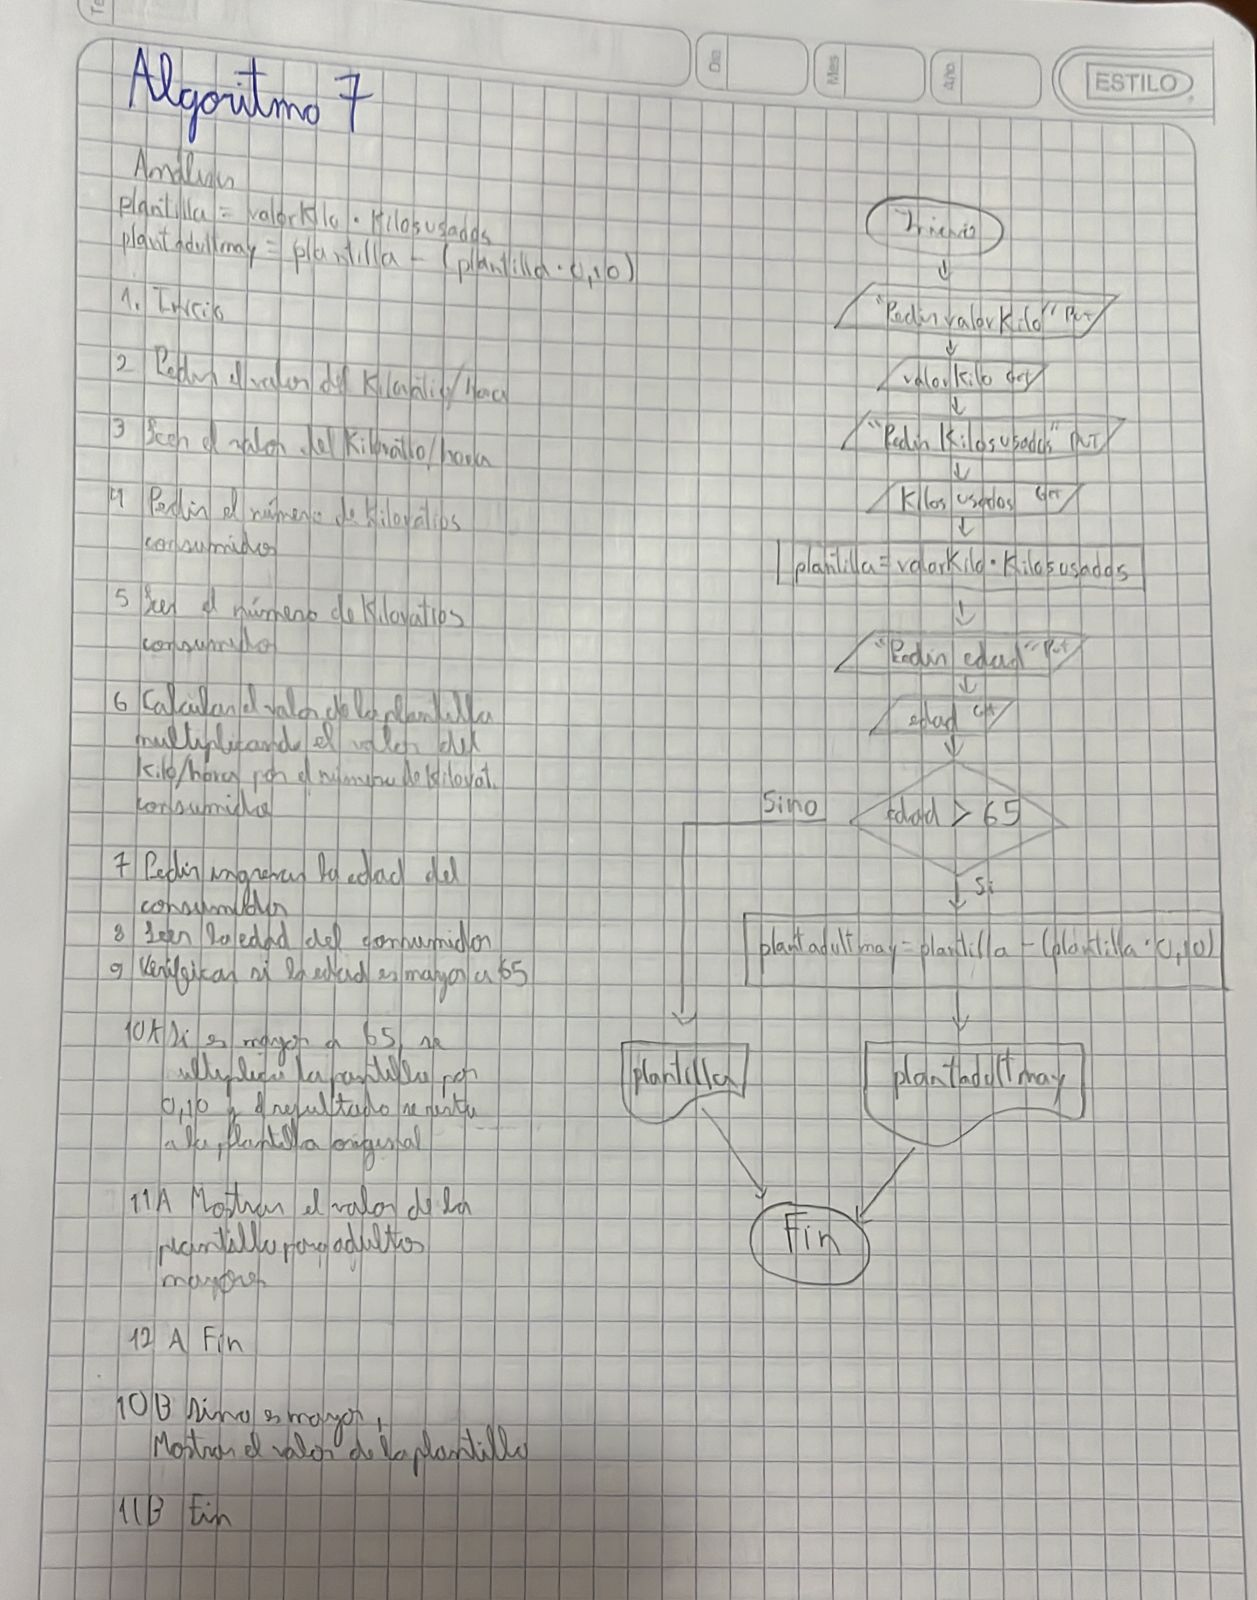 ESTILO
Dia
Mes
Año
Algoritmo 7
Analisis
plantilla = valorKilo · Kilosusados
plantadultmay = plantilla - (plantilla · 0,10)
1. Inicio
2 Pedir el valor del Kilovatio/Hora
3 Leer el valor del Kilovatio/hora
4 Pedir el número de Kilovatios
consumidos
5 Leer el número de Kilovatios
consumido
6 Calcular el valor de la plantilla
multiplicando el valor del
Kilo/hora por el número de Kilovat.
consumidos
7 Pedir ingresar la edad del
consumidor
8 Leer la edad del consumidor
9 Verificar si la edad es mayor a 65
10A Si es mayor a 65, se
multiplica la pantilla por
0,10 y el resultado se resta
a la plantilla original
11A Mostrar el valor de la
plantilla para adultos
mayores
12 A Fin
10B Sino es mayor,
Mostrar el valor de la plantilla
11B Fin
Inicio
"Pedir valorKilo" Put
valorkilo Get
"Pedir Kilosusados" PUT
Kilos usados Get
plantilla = valorKilo · Kilosusados
"Pedir edad" Put
edad Get
edad > 65
Sino
Si
plantadultmay = plantilla - (plantilla · 0,10)
plantilla
plantadultmay
Fin